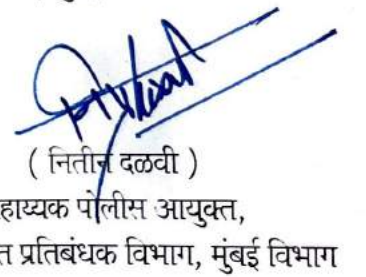 ( नितीन दळवी )
हाय्यक पोलीस आयुक्त,
त प्रतिबंधक विभाग, मुंबई विभाग